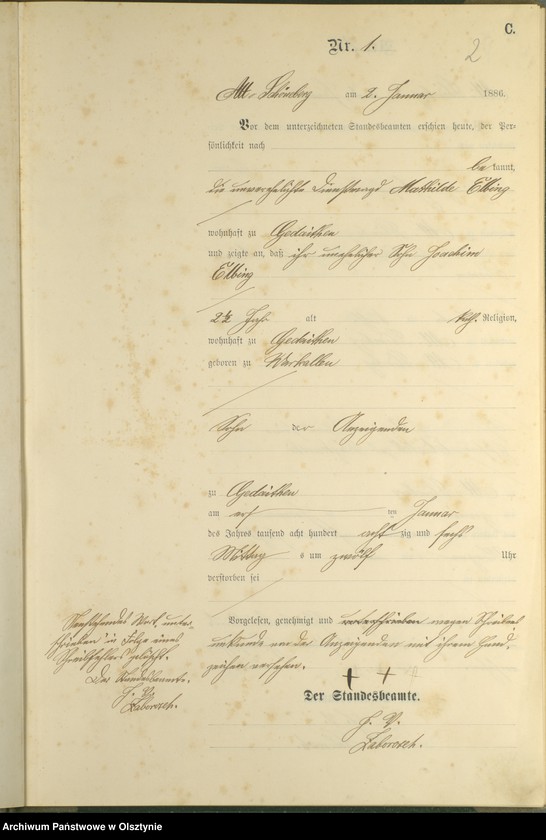 C.
Nr. 1.
2
Alt-Schöneberg am 2. Januar 1886.
Vor dem unterzeichneten Standesbeamten erschien heute, der Per-
sönlichkeit nach
be kannt,
die unverehelichte Dienstmagd Mathilde Elbing
wohnhaft zu Gedaithen
und zeigte an, daß ihr unehelicher Sohn Joachim
Elbing
2 1/4 Jahr alt kath. Religion,
wohnhaft zu Gedaithen
geboren zu Warkallen
Sohn der Anzeigenden
zu Gedaithen
am ersten Januar
des Jahres tausend acht hundert acht zig und sechs
Mittags um zwölf Uhr
verstorben sei
Vorgelesen, genehmigt und unterschrieben wegen Schreibens
unkunde von der Anzeigenden mit ihrem Hand-
zeichen versehen.
+ + +
Der Standesbeamte.
J. V.
Zaborosch.
Vorstehendes Wort „unter-
schrieben" in Folge eines
Schreibfehlers gelöscht.
Der Standesbeamte.
J. V.
Zaborosch.
Archiwum Państwowe w Olsztynie